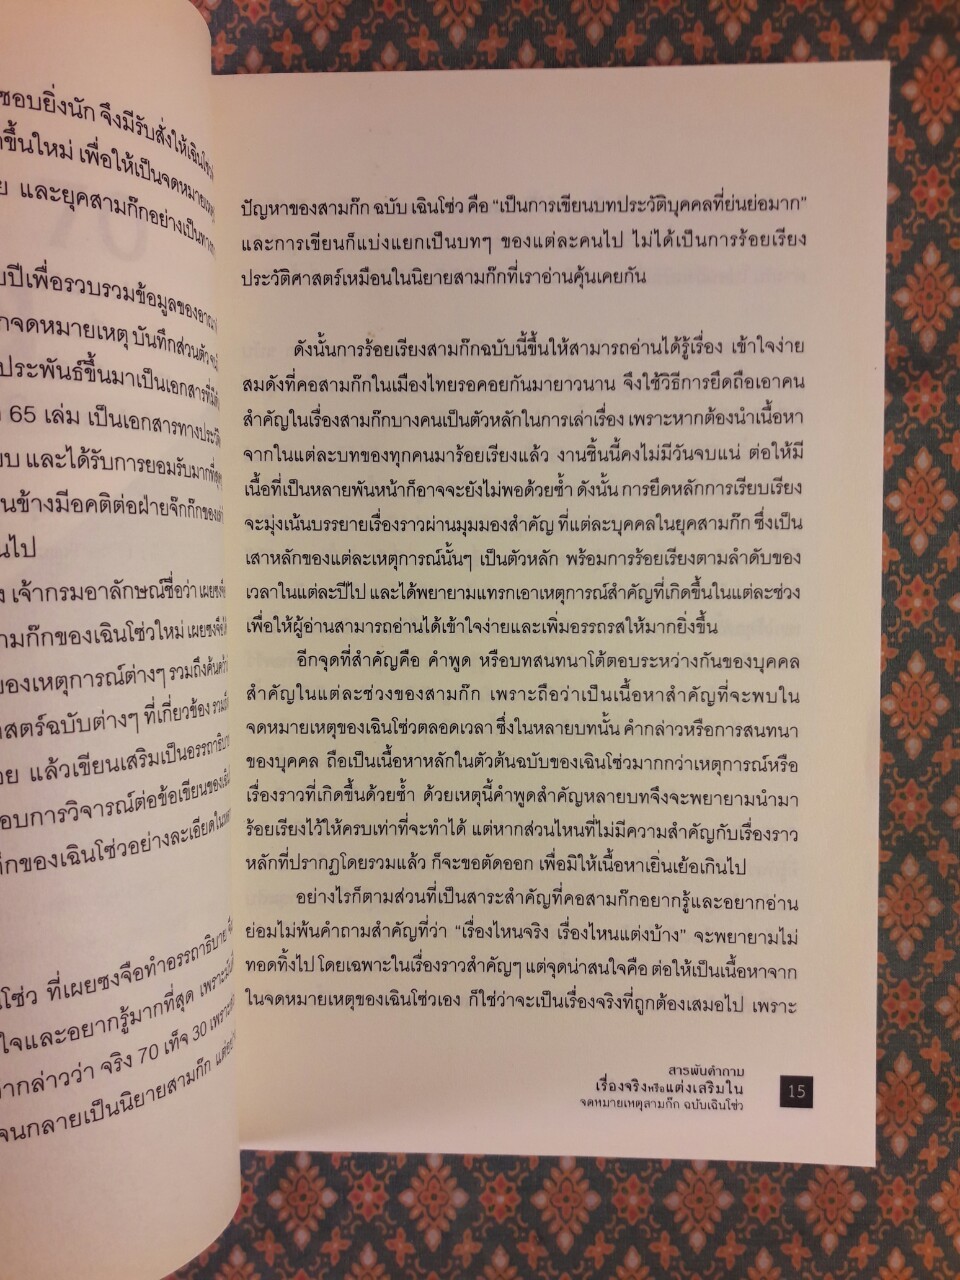 ชอบยิ่งนัก จึงมีรับสั่งให้เฉินโซ่ว
ขึ้นใหม่ เพื่อให้เป็นจดหมายเหตุ
และยุคสามก๊กอย่างเป็นทางการ
ปีเพื่อรวบรวมข้อมูลของอาณา
จดหมายเหตุ บันทึกส่วนตัว
ประพันธ์ขึ้นมาเป็นเอกสารที่มี
65 เล่ม เป็นเอกสารทางประวัติ
และได้รับการยอมรับมากที่สุด
ข้างมีอคติต่อฝ่ายจ๊กก๊กของ
นไป
เจ้ากรมอาลักษณ์ชื่อว่า เผยซงจือ
ามก๊กของเฉินโซ่วใหม่ เผยซงจือได้
ของเหตุการณ์ต่างๆ รวมถึงค้นคว้า
าสตร์ฉบับต่างๆ ที่เกี่ยวข้อง รวมทั้ง
แล้วเขียนเสริมเป็นอรรถาธิบาย
อบการวิจารณ์ต่อข้อเขียนของเฉิน
ก๊กของเฉินโซ่วอย่างละเอียดใน
นโซ่ว ที่เผยซงจือทำอรรถาธิบาย
ใจและอยากรู้มากที่สุด เพราะ
ากล่าวว่า จริง 70 เท็จ 30 เพราะ
จนกลายเป็นนิยายสามก๊ก
ปัญหาของสามก๊ก ฉบับ เฉินโซ่ว คือ “เป็นการเขียนบทประวัติบุคคลที่ย่นย่อมาก”
และการเขียนก็แบ่งแยกเป็นบทๆ ของแต่ละคนไป ไม่ได้เป็นการร้อยเรียง
ประวัติศาสตร์เหมือนในนิยายสามก๊กที่เราอ่านคุ้นเคยกัน
ดังนั้นการร้อยเรียงสามก๊กฉบับนี้ขึ้นให้สามารถอ่านได้รู้เรื่อง เข้าใจง่าย
สมดังที่คอสามก๊กในเมืองไทยรอคอยกันมายาวนาน จึงใช้วิธีการยึดถือเอาคน
สำคัญในเรื่องสามก๊กบางคนเป็นตัวหลักในการเล่าเรื่อง เพราะหากต้องนำเนื้อหา
จากในแต่ละบทของทุกคนมาร้อยเรียงแล้ว งานชิ้นนี้คงไม่มีวันจบแน่ ต่อให้มี
เนื้อที่เป็นหลายพันหน้าก็อาจจะยังไม่พอด้วยซ้ำ ดังนั้น การยึดหลักการเรียบเรียง
จะมุ่งเน้นบรรยายเรื่องราวผ่านมุมมองสำคัญ ที่แต่ละบุคคลในยุคสามก๊ก ซึ่งเป็น
เสาหลักของแต่ละเหตุการณ์นั้นๆ เป็นตัวหลัก พร้อมการร้อยเรียงตามลำดับของ
เวลาในแต่ละปีไป และได้พยายามแทรกเอาเหตุการณ์สำคัญที่เกิดขึ้นในแต่ละช่วง
เพื่อให้ผู้อ่านสามารถอ่านได้เข้าใจง่ายและเพิ่มอรรถรสให้มากยิ่งขึ้น
อีกจุดที่สำคัญคือ คำพูด หรือบทสนทนาโต้ตอบระหว่างกันของบุคคล
สำคัญในแต่ละช่วงของสามก๊ก เพราะถือว่าเป็นเนื้อหาสำคัญที่จะพบใน
จดหมายเหตุของเฉินโซ่วตลอดเวลา ซึ่งในหลายบทนั้น คำกล่าวหรือการสนทนา
ของบุคคล ถือเป็นเนื้อหาหลักในตัวต้นฉบับของเฉินโซ่วมากกว่าเหตุการณ์หรือ
เรื่องราวที่เกิดขึ้นด้วยซ้ำ ด้วยเหตุนี้คำพูดสำคัญหลายบทจึงจะพยายามนำมา
ร้อยเรียงไว้ให้ครบเท่าที่จะทำได้ แต่หากส่วนไหนที่ไม่มีความสำคัญกับเรื่องราว
หลักที่ปรากฏโดยรวมแล้ว ก็จะขอตัดออก เพื่อมิให้เนื้อหาเยิ่นเย้อเกินไป
อย่างไรก็ตามส่วนที่เป็นสาระสำคัญที่คอสามก๊กอยากรู้และอยากอ่าน
ย่อมไม่พ้นคำถามสำคัญที่ว่า “เรื่องไหนจริง เรื่องไหนแต่งบ้าง” จะพยายามไม่
ทอดทิ้งไป โดยเฉพาะในเรื่องราวสำคัญๆ แต่จุดน่าสนใจคือ ต่อให้เป็นเนื้อหาจาก
ในจดหมายเหตุของเฉินโซ่วเอง ก็ใช่ว่าจะเป็นเรื่องจริงที่ถูกต้องเสมอไป เพราะ
สารพันคำถาม
เรื่องจริงหรือแต่งเสริมใน
จดหมายเหตุสามก๊ก ฉบับเฉินโซ่ว
15